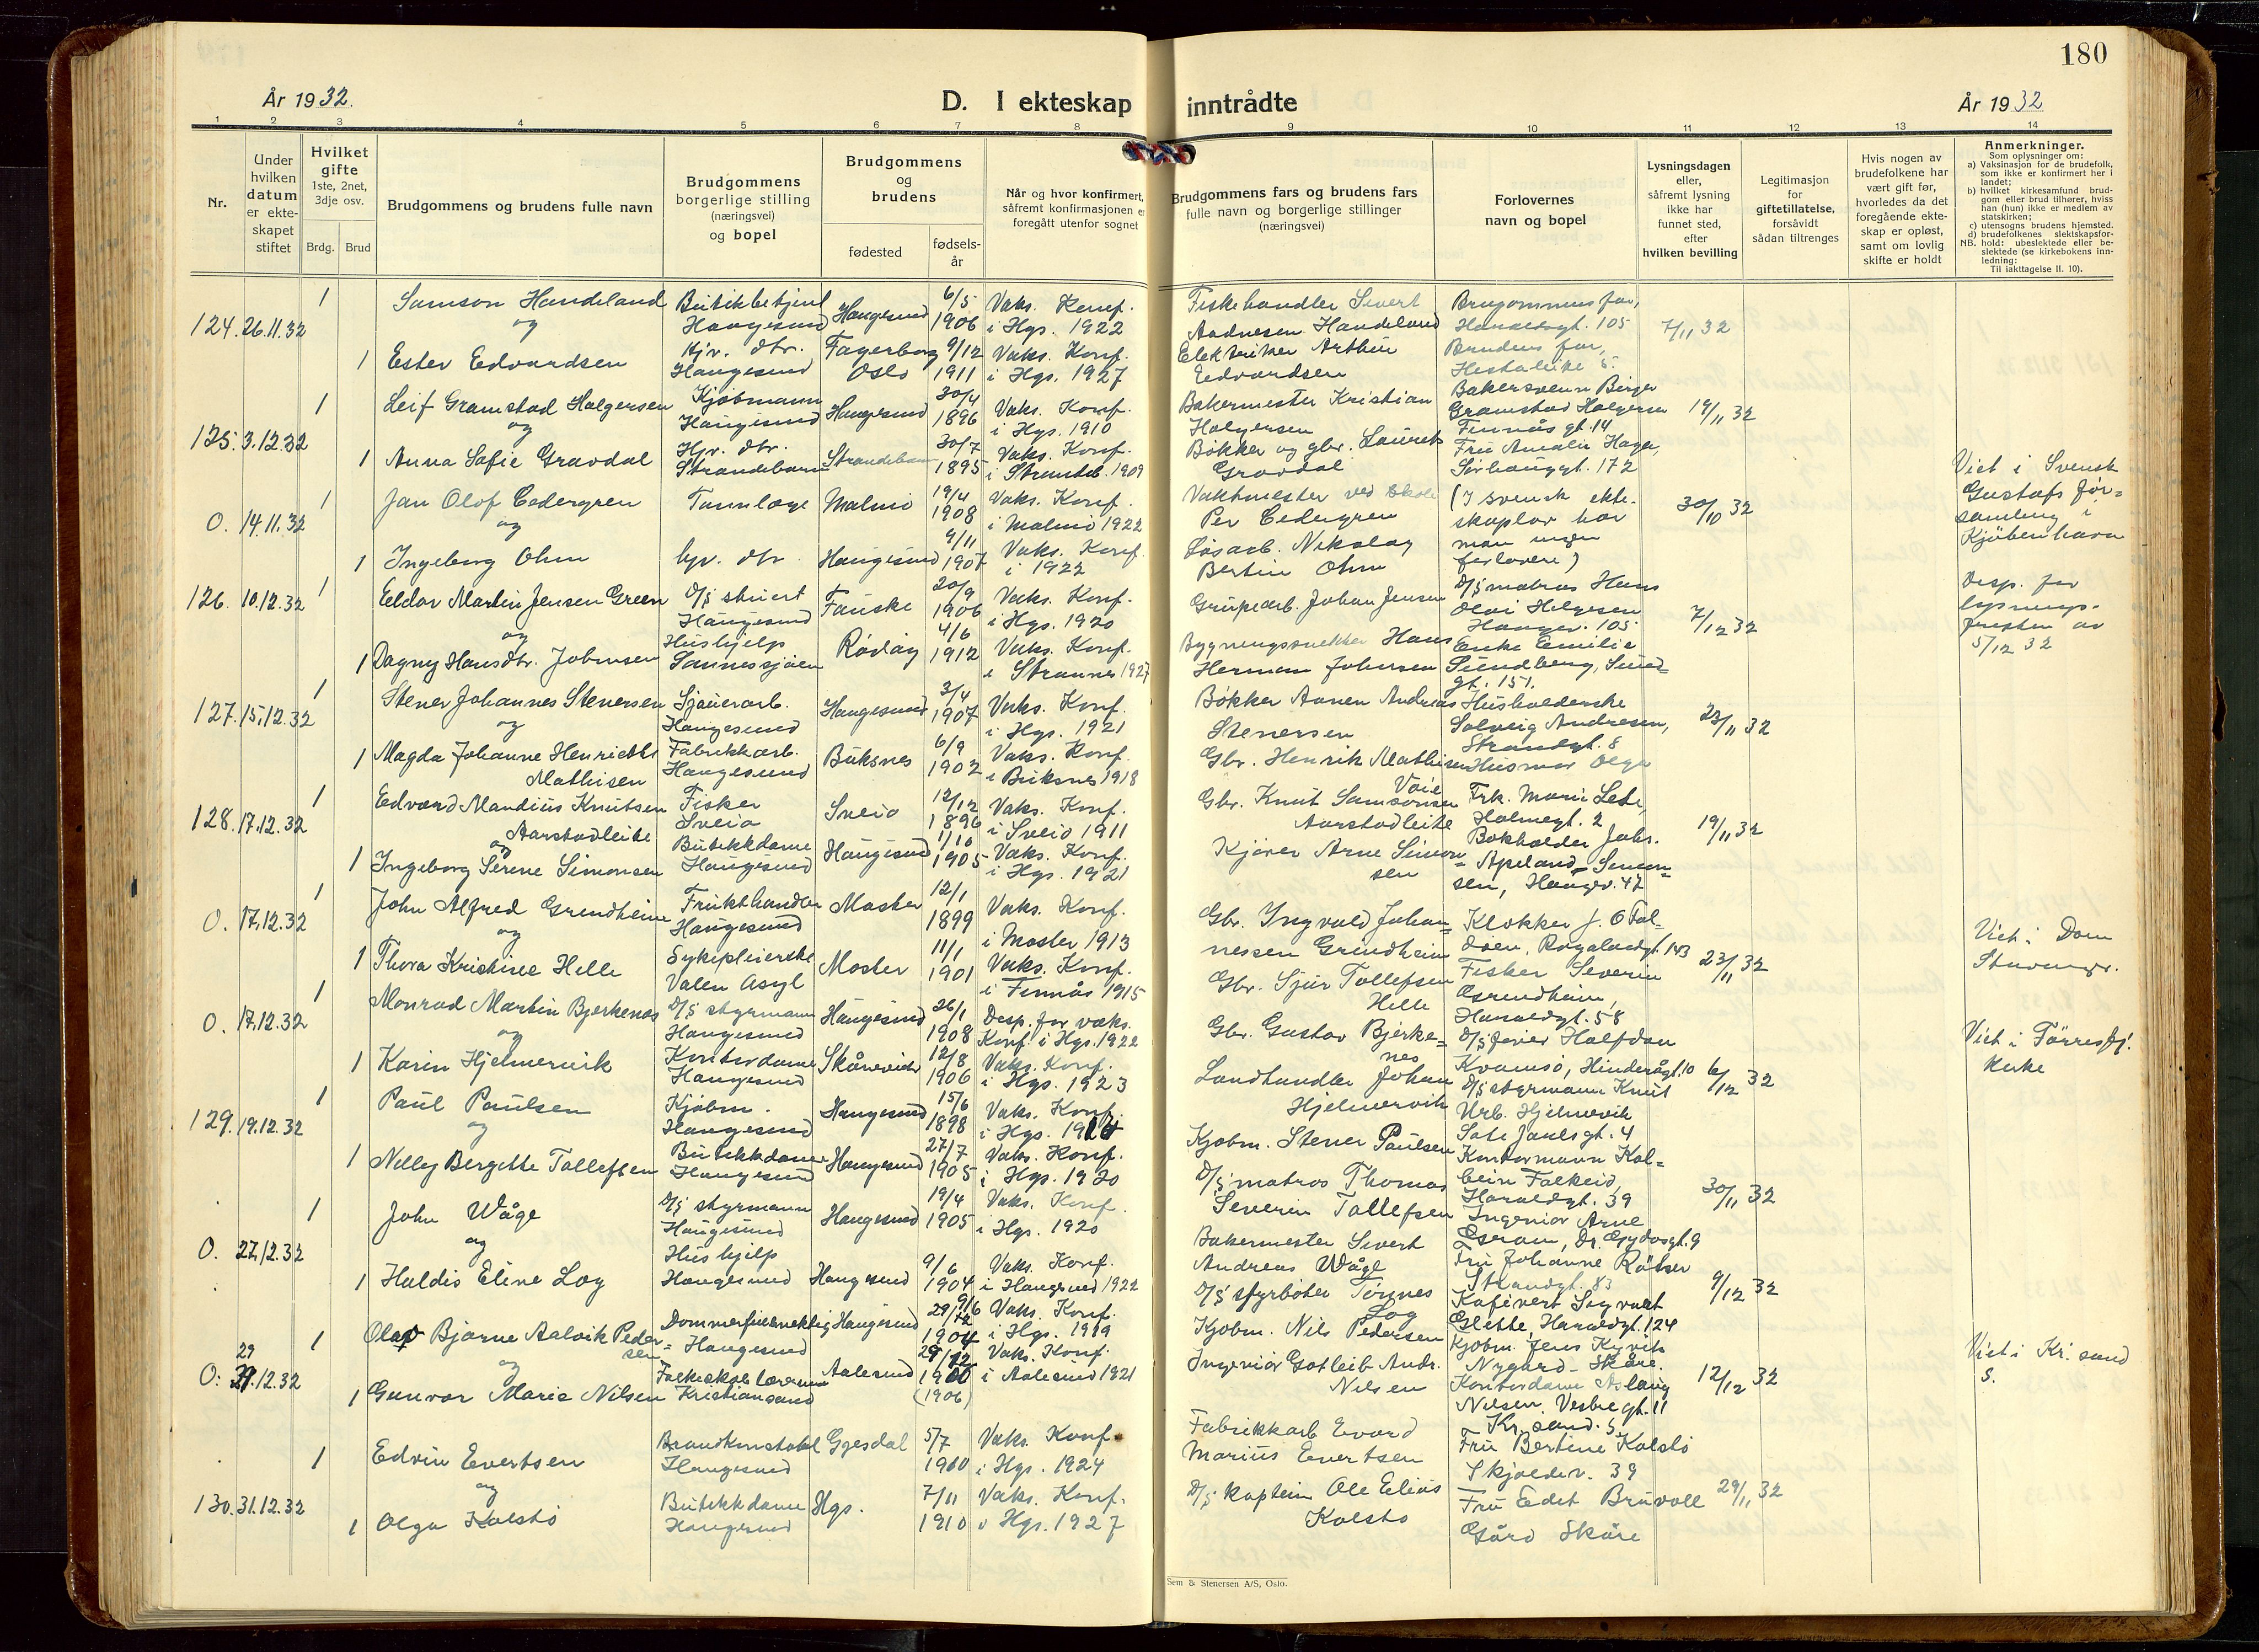 180
År 1932.
D. I ekteskap inntrådte
År 1932
1 2 3 4 5 6 7 8 9 10 11 12 13 14
Nr.
Under hvilken datum er ekte-skapet stiftet
Hvilket gifte
1ste, 2net, 3dje osv.
Brdg. Brud
Brudgommens og brudens fulle navn
Brudgommens borgerlige stilling (næringsvei) og bopel
Brudgommens og brudens
fødested
fødsels-år
Når og hvor konfirmert,
såfremt konfirmasjonen er
foregått utenfor sognet
Brudgommens fars og brudens fars
fulle navn og borgerlige stillinger
(næringsvei)
Forlovernes
navn og bopel
Lysningsdagen
eller,
såfremt lysning
ikke har
funnet sted,
efter
hvilken bevilling
Legitimasjon
for
giftetillatelse,
forsåvidt
sådan tiltrenges
Hvis nogen av
brudefolkene har
vært gift før,
hvorledes da det
foregående ekte-
skap er opløst,
samt om lovlig
skifte er holdt
Anmerkninger.
Som oplysninger om:
a) Vaksinasjon for de brudefolk,
som ikke er konfirmert her i
landet;
b) hvilket kirkesamfund brud-
gom eller brud tilhører, hviss
han (hun) ikke er medlem av
statskirken;
c) utensogns brudens hjemsted.
d) brudefolkenes slektskapsfor-
NB. hold: ubeslektede eller be-
slektede (se kirkebokens inn-
ledning:
Til iakttagelse II. 10).
124. 26.11.32
1 Samson Handeland Butikbetjent Haugesund Haugesund 6/5 1906 Vaks. Konf. i Hgs. 1922
og
1 Ester Edvardsen Hjv. dtr. Haugesund Fagerborg Oslo 9/12 1911 Vaks. Konf. i Hgs. 1927
Fiskehandler Sivert
Aadnesen Handeland
Elektriker Arthur
Edvardsen
Brugommens far,
Haraldsgt. 105
Brudens far,
7/11 32
125. 3.12.32
1 Leif Gramstad Holgersen Kjøbmann Haugesund Haugesund 30/4 1896 Vaks. Konf. i Hgs. 1910
og
1 Anna Sofie Gravdal Hjv. dtr. Strandebarm Strandebarm 30/7 1895 Vaks. Konf. i Strandeb. 1909
Bakermester Kristian
Holgersen
Bøkker og gbr. Laurets
Gravdal
Bakersvenn Birger
Gramstad Holgersen
Fennås gt. 14
Fru Amalie Hage,
Sørhauggt. 172
19/11 32
O. 14.11.32
1 Jan Olof Cedergren Tannlæge Malmö 19/4 1908 Vaks. Konf. i Malmö 1922
og
1 Ingeborg Ohm hjv. dtr. Haugesund 9/11 1907 Vaks. Konf. i 1922
Vaktmester ved skole
Per Cedergren
Løsarb. Nikolay
Bertin Ohm
(I svensk ekte-
skapslov har
man ingen
forlovere)
30/10 32
Viet i Svensk
Gustafs för-
samling i
Kjøbenhavn
126. 10.12.32
1 Eldar Martin Jensen Green D/S stuert Haugesund Fauske 20/9 1906 Vaks. Konf. i Hgs. 1920
og
1 Dagny Hansdtr. Johnsen Hushjelp Sannessjøen Rødøy 4/6 1912 Vaks. Konf. i Stramnes 1927
Grubearb. Johan Jensen
Bygningssnekker Hans
Herman Johnsen
D/S matros Hans
Olai Helgesen
Haugev. 105
Enke Emilie
Sundberg, Sund-
gt. 151.
7/12 32
Disp. for
lysnings-
fristen av
5/12 32
127. 15.12.32
1 Stener Johannes Stenersen Sjauerarb. Haugesund Haugesund 3/4 1907 Vaks. Konf. i Hgs. 1921
og
1 Magda Johanne Henriette Mathisen Fabrikkarb. Haugesund Buksnes 6/9 1902 Vaks. Konf. i Buksnes 1918
Bøkker Aanen Andreas
Stenersen
Gbr. Henrik Mathisen
Husholderske
Solveig Andresen,
Strandgt. 8
Husmor Olga
Våie
23/11 32
128. 17.12.32
1 Edvard Mandius Knutsen Aarstadleite Fisker Sveio Sveio 12/12 1896 Vaks. Konf. i Sveio 1911
og
1 Ingeborg Serene Simonsen Butikkdame Haugesund Haugesund 1/10 1905 Vaks. Konf. i Hgs. 1921
Gbr. Knut Samsonsen
Aarstadleite
Kjører Arne Simon-
sen
Frk. Marie Lete,
Holmegt. 2
Bokholder Johs.
Apeland Simon-
sen, Haugev. 47
19/11 32
O. 17.12.32
1 John Alfred Grindheim Frukthandler Haugesund Moster 12/1 1899 Vaks. Konf. i Moster 1913
og
1 Thora Kristine Helle Sykepleierske Valen Asyl Moster 11/1 1901 Vaks. Konf. i Finnås 1915
Gbr. Yngvald Johan-
nessen Grindheim
Gbr. Sjur Tollefsen
Helle
Klokker J. O Fol-
døen, Rogalandgt. 143
Fisker Severin
Grindheim,
Haraldgt. 58
23/11 32
Viet i Dom
Stavanger.
O. 17.12.32
1 Monrad Martin Bjerkenes D/S styrmann Haugesund Haugesund 26/1 1908 Disp. for vaks. Konf. i Hgs. 1922
og
1 Karin Hjelmervik Kontordame Haugesund Skånevik 12/8 1906 Vaks. Konf. i Hgs. 1923
Gbr. Gustav Bjerke-
nes
Landhandler Johan
Hjelmervik
D/S fører Halfdan
Kvamsø, Hinderågt. 10
D/S styrmann Knut
Urb. Hjelmevik
Sote Jarlsgt. 4
6/12 32
Viet i Førresfj.
kirke
129. 19.12.32
1 Paul Paulsen Kjøbm. Haugesund Haugesund 15/6 1898 Vaks. Konf. i Hgs.
og
1 Nelly Bergitte Tollefsen Butikkdame Haugesund Haugesund 27/7 1905 Vaks. Konf. i Hgs. 1920
Kjøbm. Stener Paulsen
D/S matros Thomas
Severin Tollefsen
Kontormann Kol-
bein Falkeid,
Haraldgt. 39
Ingeniør Arne
Gsram, Dr. Gydasgt. 9
30/11 32
O. 27.12.32
1 John Wåge D/S styrmann Haugesund Haugesund 19/4 1905 Vaks. Konf. i Hgs. 1920
og
1 Haldis Eline Log Hushjelp Haugesund Haugesund 9/6 1904 Vaks. Konf. i Haugesund 1922
Bakermester Sivert
Andreas Wåge
D/S fyrbøter Tønnes
Log
Fru Johanne
Strandgt. 83
Kafévert Sigvart
Glette, Haraldgt. 124
9/12 32
O. 29.12.32
1 Olav Bjarne Aalvik Peder-sen Dommerfullmektig Haugesund Haugesund 1904 Vaks. Konf. i Hgs. 1919
og
1 Gunvor Marie Nilsen Folkeskolelærerinne Kristiansand Aalesund (1906) Vaks. Konf. i Aalesund 1921
Kjøbm. Nils Pedersen
Ingeniør Gotleib Andr.
Nilsen
Kjøbm. Jens Kyvik
Nygård - Skåre.
Kontordame Aslaug
Nilsen, Vesbregt. 11
Kr. sand. S.
12/12 32
Viet i Kr. sand
S.
130. 31.12.32
1 Edvin Evertsen Brandkonstabel Haugesund Gjesdal 5/7 Vaks. Konf. i Hgs. 1924
og
1 Olga Kolstø Butikkdame Haugesund Hgs. 7/11 1910 Vaks. Konf. i Hgs. 1927
Fabrikkarb Evard
Marius Evertsen
D/S kaptein Ole Elias
Kolstø
Fru Bertine Kolstø
Skjoldev. 39
Fru Edit Bruvoll
Gård Skåre
29/11 32
Sem & Stenersen A/S, Oslo.